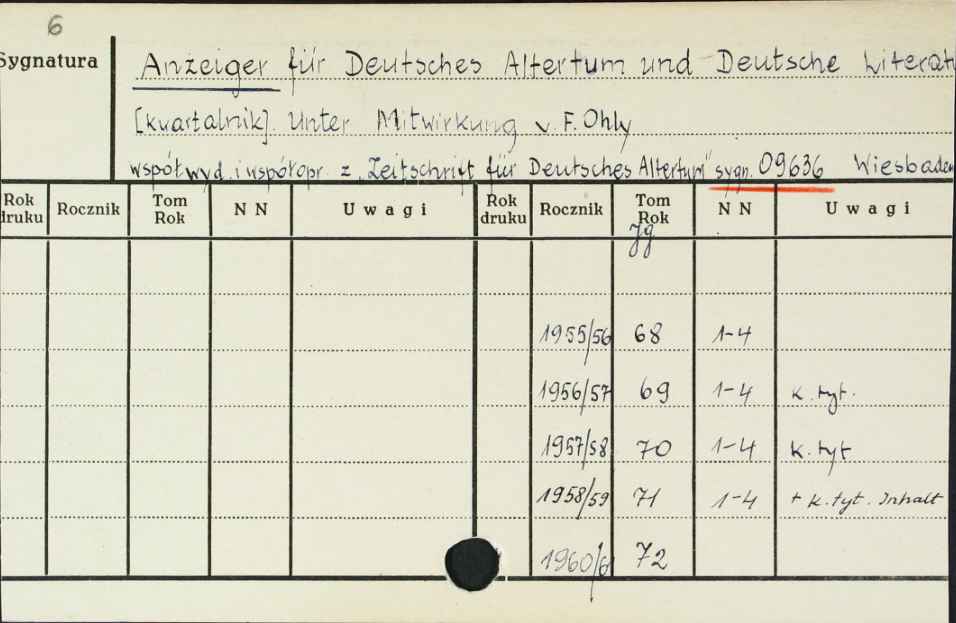 6
Sygnatura
Anzeiger für Deutsches Altertum und Deutsche Literat
[kwartalnik]. Unter Mitwirkung v. F. Ohly
współwyd. i współopr. z „Zeitschrift für Deutsches Altertum" sygn. 09636 Wiesbaden
Rok druku Rocznik Tom Rok NN Uwagi Rok druku Rocznik Tom Rok NN Uwagi
Jg
1955/56 68 1-4
1956/57 69 1-4 k. tyt.
1957/58 70 1-4 k. tyt
1958/59 71 1-4 + k. tyt. Inhalt
1960/61 72